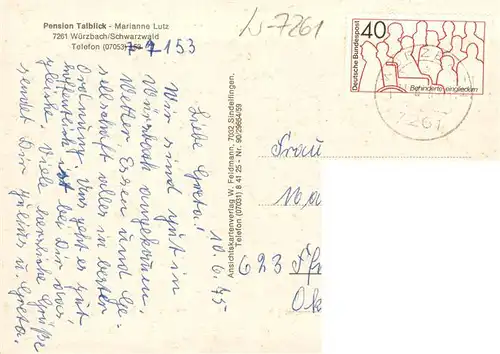 Pension Talblick - Marianne Lutz
7261 Würzbach/Schwarzwald
Telefon (07053)
7153
W-7261
Deutsche Bundespost
40
Behinderte eingliedern
7261
10.6.75
Liebe Greta!
Wir sind gut in
Würzbach angekommen.
Wetter Essen und Ge-
sellschaft alles in bester
Ordnung. Uns geht es gut
hoffentlich ist bei Dir das
gleiche. Viele herzliche Grüße
sendet Dir Julius u. Greta.
Ansichtskartenverlag W. Feldmann, 7032 Sindelfingen,
Telefon (07031) 8 41 25 - Nr. 90/29854/59
Frau
Ma
623
Ok